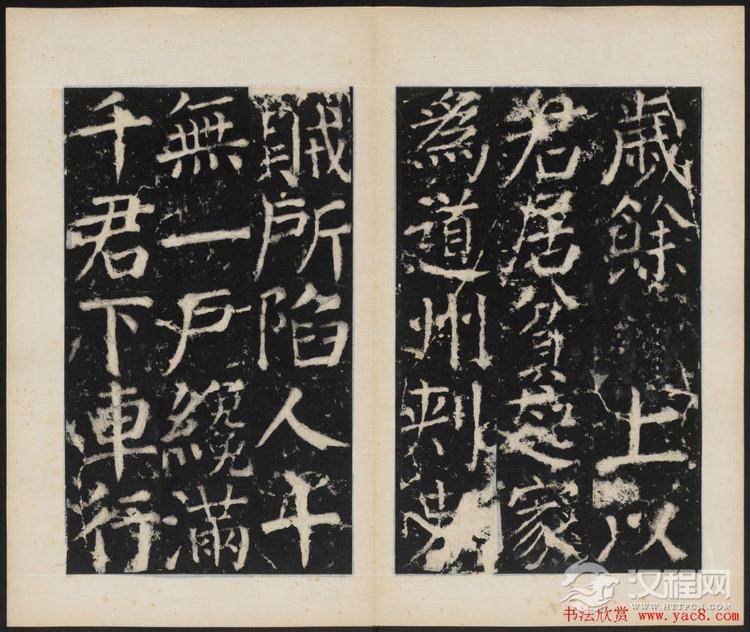 歲餘上以
君居貧起家
爲道州刺史
賊所陷人十
無一戶纔滿
千君下車行
汉程网
WWW.HTTPCN.COM
书法欣赏 www.yac8.com